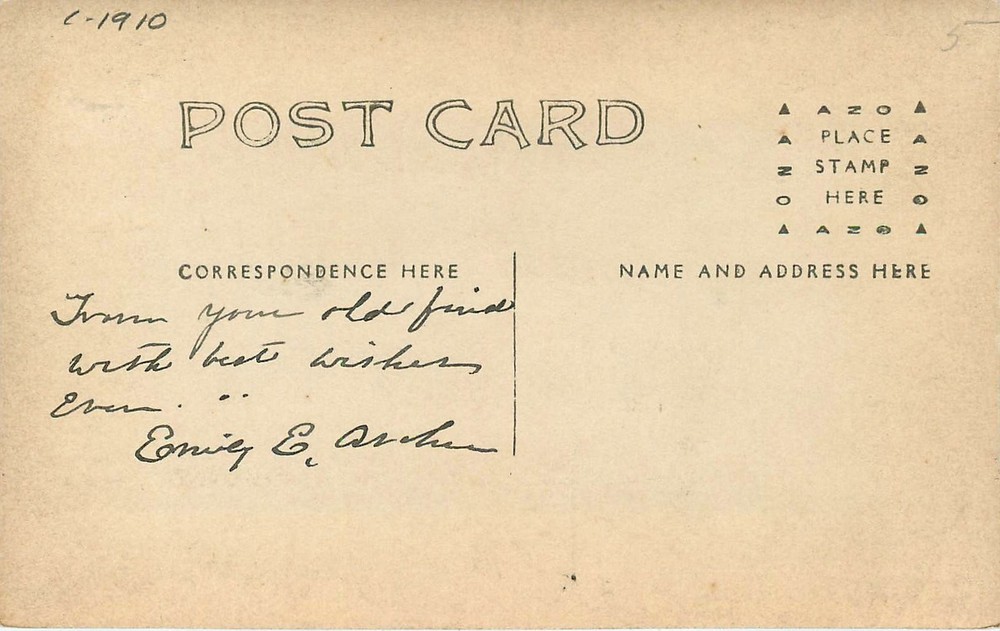 c-1910
5
POST CARD
▲ A Z O ▲
A PLACE A
N STAMP N
O HERE O
▲ A Z O ▲
CORRESPONDENCE HERE
NAME AND ADDRESS HERE
From your old friend
with best wishes
Ever. ..
Emily E. Archer